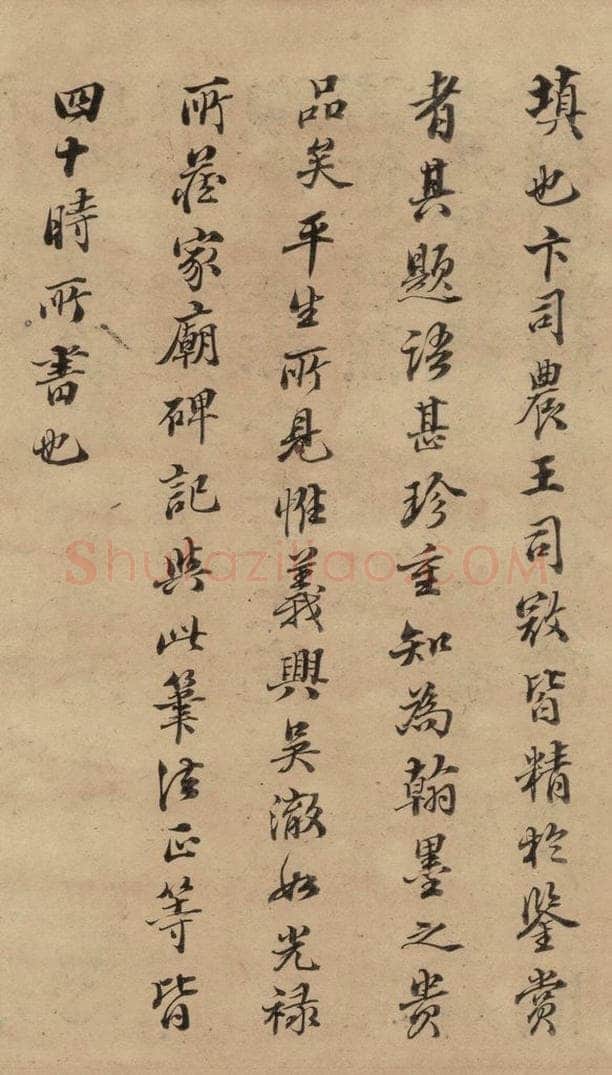 填也卞司農王司寇皆精於鑒賞
者其題語甚珍重知為翰墨之貴
品矣平生所見惟義興吳澈如光祿
所藏家廟碑記與此筆法正等皆
四十時所書也
Shufaziliao.COM